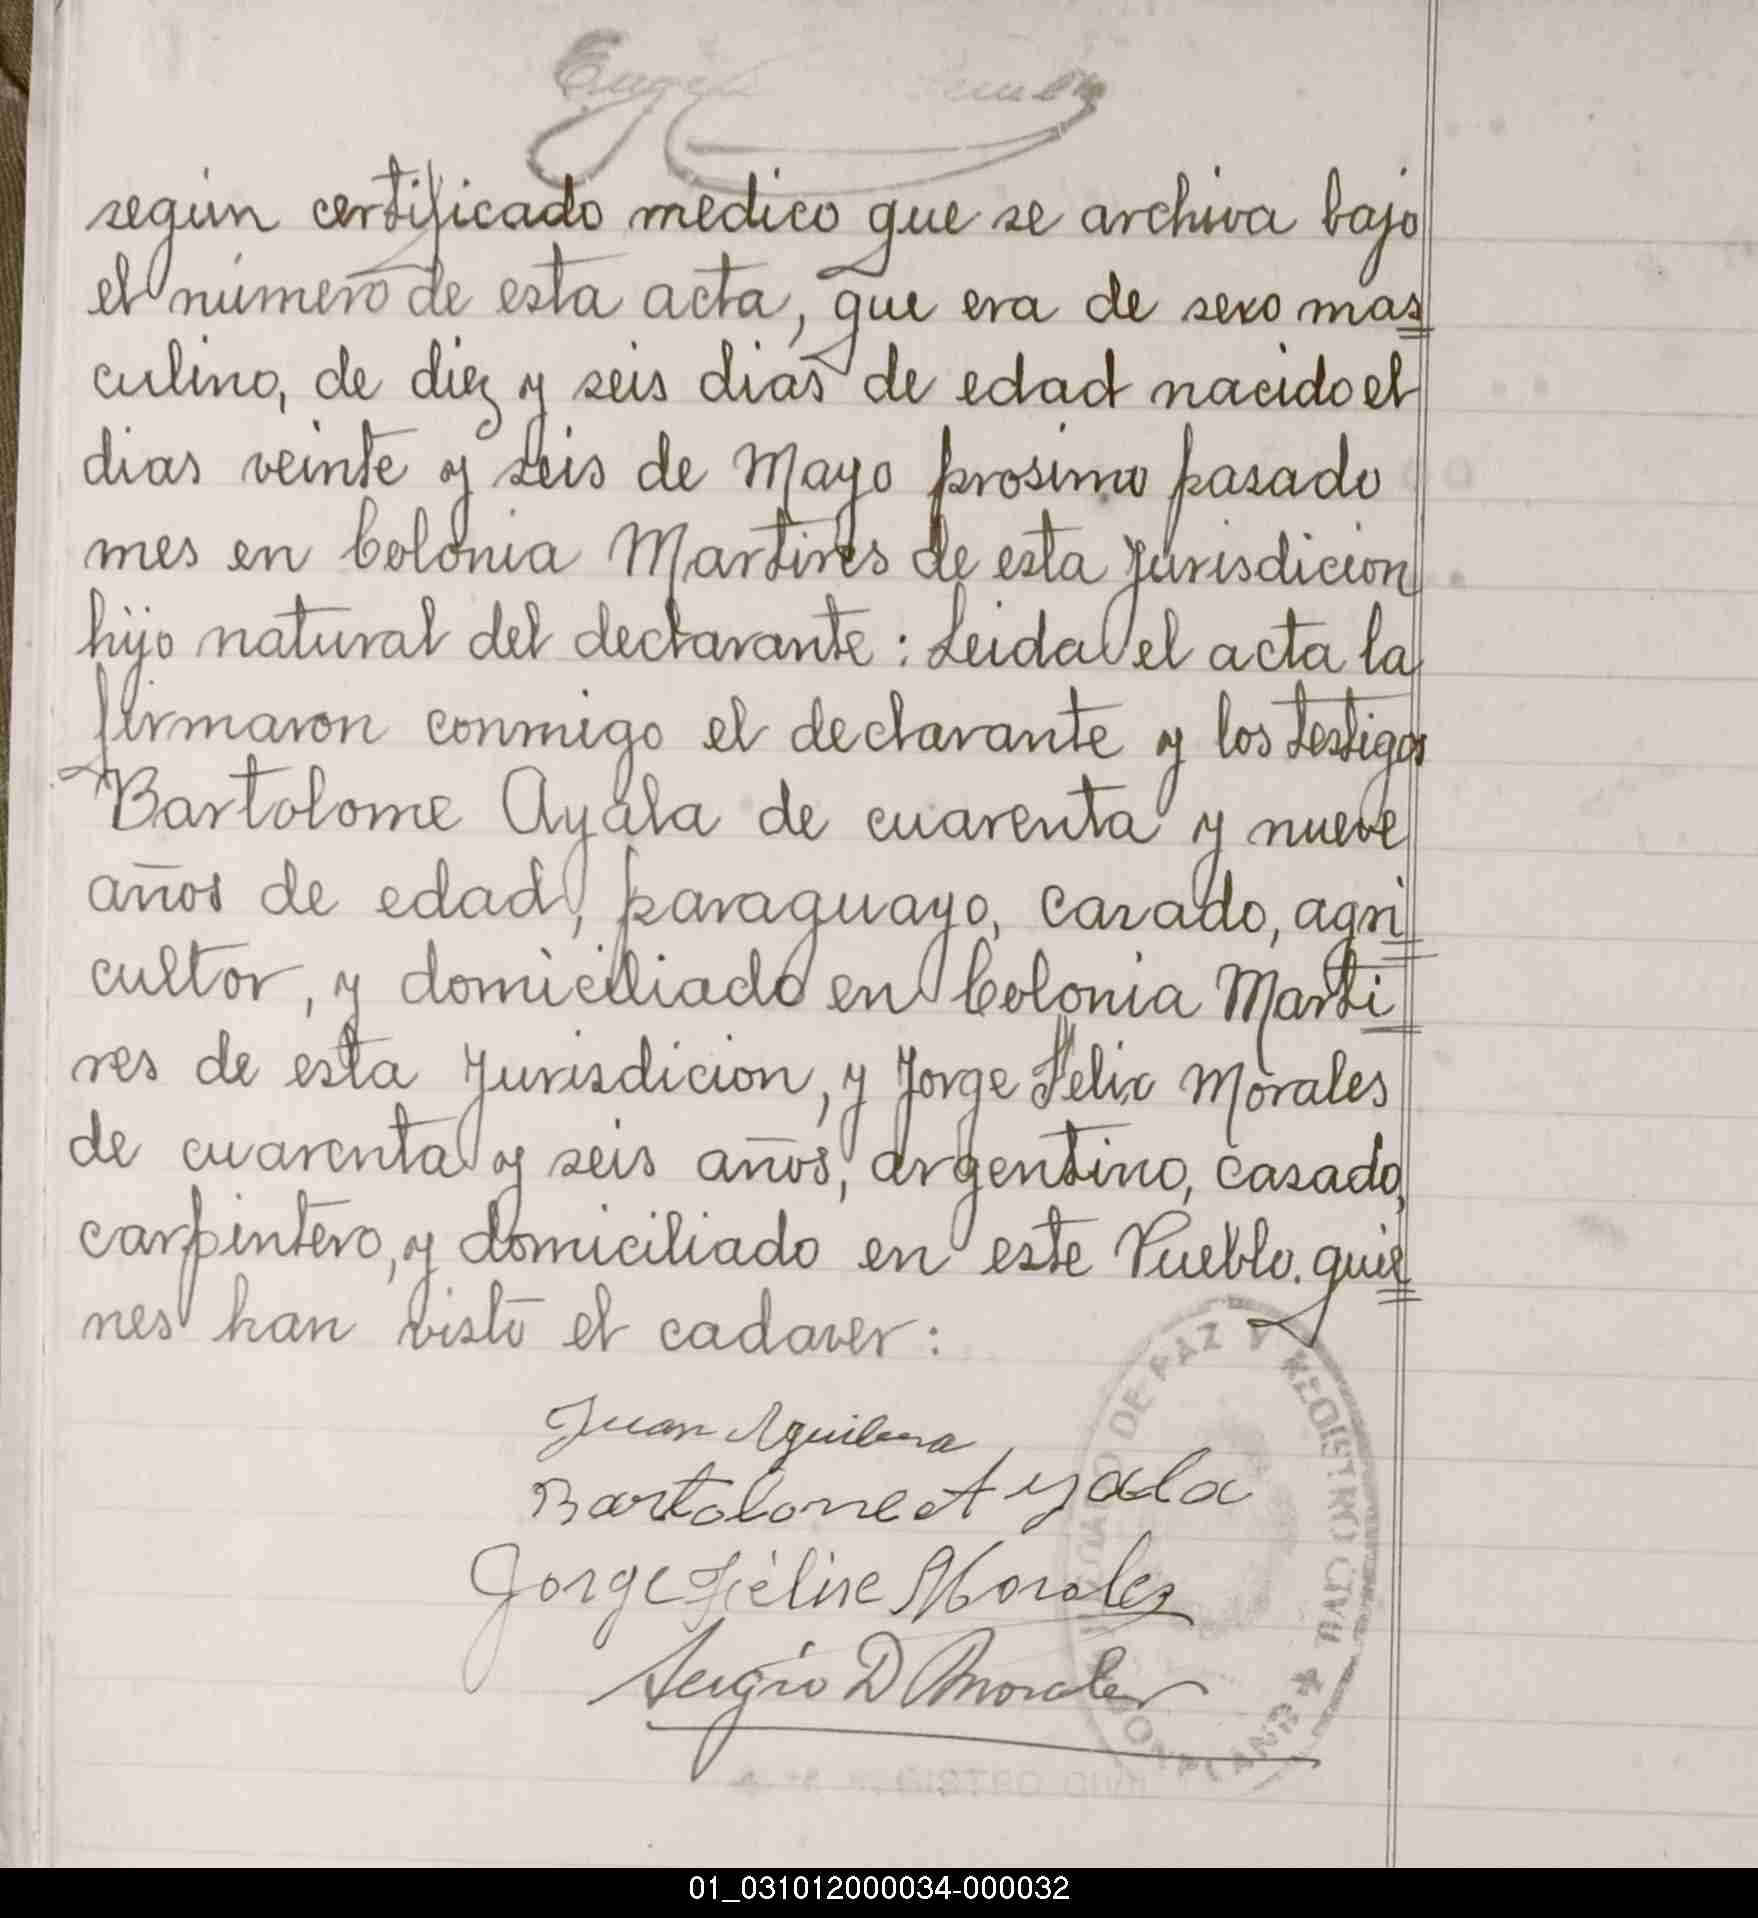 según certificado medico que se archiva bajo
el número de esta acta, que era de sexo mas
culino, de diez y seis dias de edad nacido el
dias veinte y seis de Mayo prosimo pasado
mes en Colonia Martires de esta Jurisdicion
hijo natural del declarante: Leida el acta la
firmaron conmigo el declarante y los testigos
Bartolome Ayala de cuarenta y nueve
años de edad, paraguayo, casado, agri
cultor, y domiciliado en Colonia Marti
res de esta Jurisdicion, y Jorge Felix Morales
de cuarenta y seis años, argentino, casado,
carpintero, y domiciliado en este Pueblo. quie
nes han visto el cadaver:
Juan Aguilera
Bartolome Ayala
Jorge Félix Morales
Sergio D Morales
JUZGADO DE PAZ Y REGISTRO CIVIL
BONPLAND
01_031012000034-000032